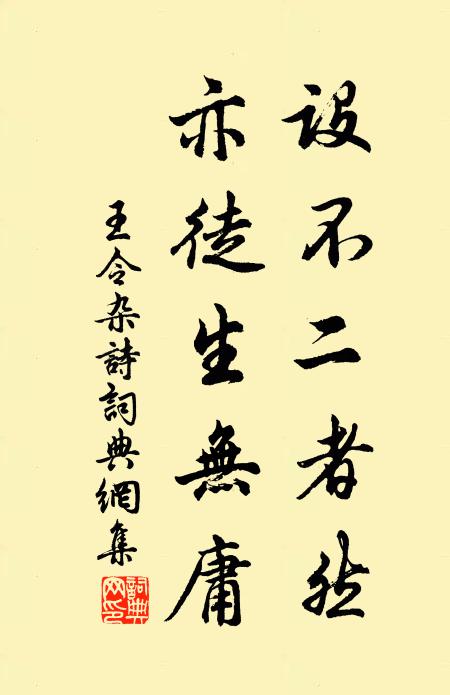 設不二者然
亦徒生無庸
王令杂詩詞典網集
詞典
网印